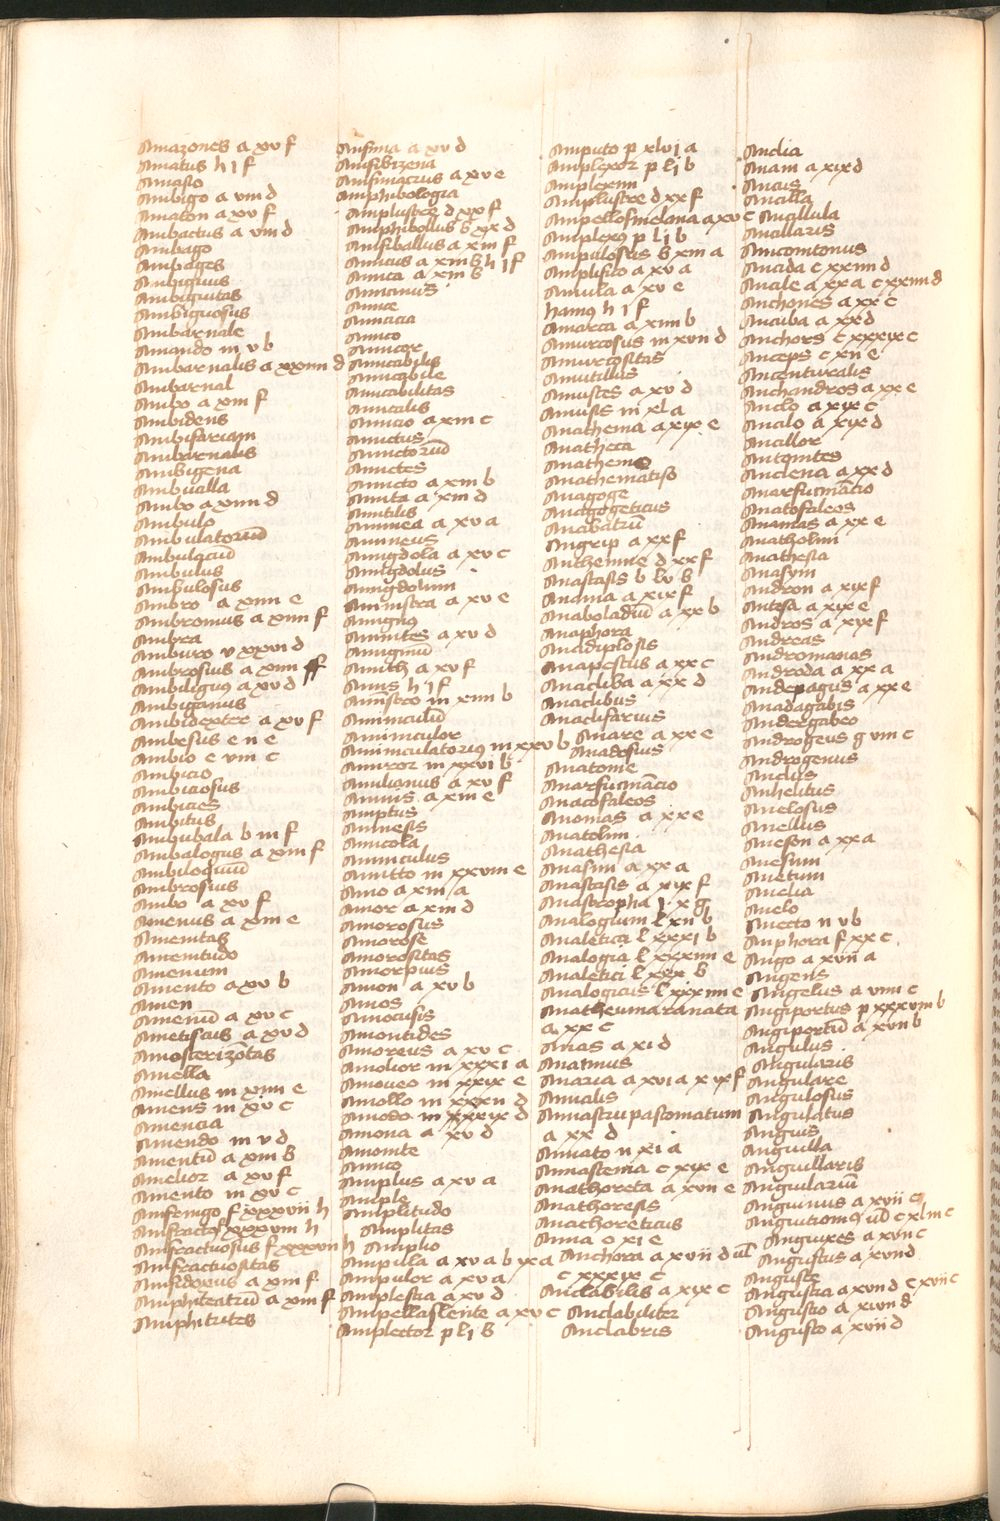 Amazones a xv f
Amatus h i f
Amasio
Ambigo a viii d
Amalon a xv f
Ambactus a viii d
Ambago
Ambages
Ambiguus
Ambiguitas
Ambiguosus
Ambarnale
Amando m v b
Ambarnalis a xxiiii d
Ambarnal
Ambo a xiii f
Ambidens
Ambifariam
Ambarnalis
Ambigena
Ambualla
Ambo a xiiii d
Ambulo
Ambulatoriū
Ambulacū
Ambulus
Ambulosus
Ambro a xiiii e
Ambromus a xiiii f
Ambra
Amburo v xxvi d
Ambrosius a xiiii f
Ambiligus a xv d
Ambiganus
Ambidexter a xv f
Ambesus e ii e
Ambio e viii c
Ambicio
Ambiciosus
Ambicies
Ambitus
Ambubala b iii f
Ambalogus a xiii f
Ambiloquiū
Ambrosius
Ambo a xv f
Amenus a xiiii e
Amenitas
Amenitudo
Amenum
Amento a xv b
Amen
Amenū a xv c
Ametiscus a xv d
Amosterizontas
Amella
Amellus m xiiii e
Amens m xv c
Amencia
Amendo m v d
Amentū a xiii b
Amelior a xv f
Amento m xv c
Amfrmigo f xxxvii h
Amfractus f xxxviii h
Amfractuosus f xxxvii h
Amfractuositas
Amfidoxus a xiii f
Amphiteatrū a xiii f
Amphitrites
Amfima a xv d
Amfibizena
Amfimacrus a xv e
Amphibologia
Amplustre d xx f
Amphibolus b xx d
Amfiballus a xiii f
Amicus a xiii b h i f
Amica a xiii b
Amicinus
Amice
Amicicia
Amico
Amicor
Amicabilis
Amicabile
Amicabilitas
Amicalis
Amicio a xiii c
Amictus
Amictoriū
Amictes
Amicto a xiii b
Amita a xiii d
Amitilis
Aminea a xv a
Amineus
Amigdola a xv c
Amigdolus
Amigdolum
Aministra a xv e
Amignus
Amintes a xv d
Amiginū
Amith a xv f
Amis h i f
Aministro m xiiii b
Aminiculū
Aminiculor
Aminiculatorius m xxv b
Amiror m xxvi b
Amilianus a xv f
Amnis a xiii e
Amptus
Amnesis
Amnicola
Amniculus
Amitto m xxviii e
Amo a xiii a
Amor a xiii d
Amorosus
Amorose
Amorositas
Amorpius
Amon a xv b
Amos
Amocisis
Amontides
Amoreus a xv c
Amolior m xxxi a
Amoueo m xxix e
Amollo m xxxii d
Amodo m xxxix d
Amona a xv d
Amonite
Amnco
Amplus a xv a
Ample
Amplitudo
Amplitas
Amplio
Ampulla a xv a b ix a
Ampulor a xv a
Amplestia a xv d
Ampellaslente a xv c
Amplector p li b
Amputo p xlvi a
Amplexor p li b
Amplexim
Amplustre d xx f
Ampellosmelana a xv c
Amplexus p li b
Ampulosus b xiii a
Amplifico a xv a
Amula a xv e
hamus h i f
Amarca a xiiii b
Amurcosus m xvii d
Amurcositas
Amutillus
Amustes a xv d
Amusis m xl a
Anathema a xix e
Anatheca
Anathemo
Anathematiso
Anagoge
Anagogeticus
Anabatrū
Angrip a xx f
Anthemne d xx f
Anastasis b lv b
Anania a xix f
Anaboladiū a xx b
Anaphora
Anadiplosis
Anapestus a xx c
Anacliba a xx d
Anaclibus
Anaclifarius
Anare a xx e
Anadosius
Anatome
Anarsumācio
Anacofaleos
Anomas a xx e
Anatolim
Anathesia
Anasim a xx a
Anastasis a xix f
Anastropha i x g
Analogium l xii b
Analetici l xxxi b
Analogia l xxxiiii e
Analetici l xxx b
Analogicus l xxxiiii e
Anatheumaranata
a xx c
Anas a xi d
Anatinus
Anaria a xvi a x ix f
Annalis
Annastrupastomatum
a xx d
Annato n xi a
Annastenia c xix e
Anathoreta a xvii e
Anathoresis
Anachoreticus
Anna o xi e
Anchora a xvii d ul
c xxxix c
Anclabilis a xix c
Anclabiliter
Anclabris
Anclia
Anam a xix d
Ancus
Ancilla
Ancillula
Ancillaris
Ancomtonus
Ancida c xxiiii d
Ancale a xx a c xxiiii d
Anchones a xx c
Ancuba a xx d
Anchors c xxxix c
Anceps c xii e
Ancenturalis
Anchandros a xx e
Anclo a xix c
Ancilo a xix d
Ancillor
Antomtes
Anclena a xx d
Anarsumācio
Anatofaleos
Anamas a xx e
Anatholim
Anathesia
Anasym
Andron a xix f
Antesa a xix e
Andros a xix f
Andreas
Andromanas
Androda a xx a
Andepagus a xx e
Anadagabis
Andergabeo
Androgeus g viii c
Androgenus
Anclus
Anhelitus
Anelosus
Anellus
Aneson a xx a
Anesum
Anetum
Anelia
Anelo
Anecto n v b
Anphora f xx c
Ango a xvii a
Angens
Angelus a viii c
Angiportus p xxxviii b
Angiportū a xvii b
Angulus
Angularis
Angulare
Angulosus
Angulatus
Anguis
Anguilla
Anguillaris
Anguilariū
Anguinus a xvii c
Anguitionus ud c xliii c
Anguixes a xvii c
Angustus a xvii d
Anguste
Angustia a xvii d c xvii c
Angustio a xvii d
Angusto a xvii d